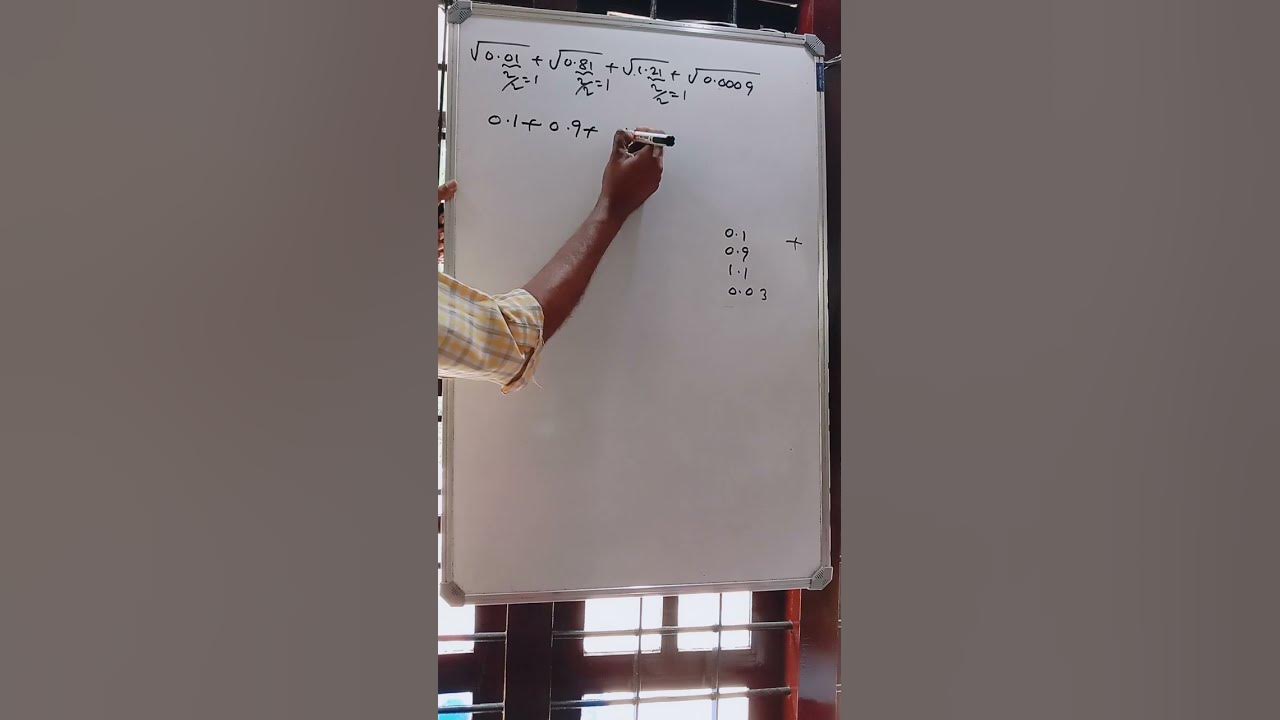 √0.01 + √0.81 + √1.21 + √0.0009
2/2=1 2/2=1 2/2=1
0.1+ 0.9+
0.1 +
0.9
1.1
0.03